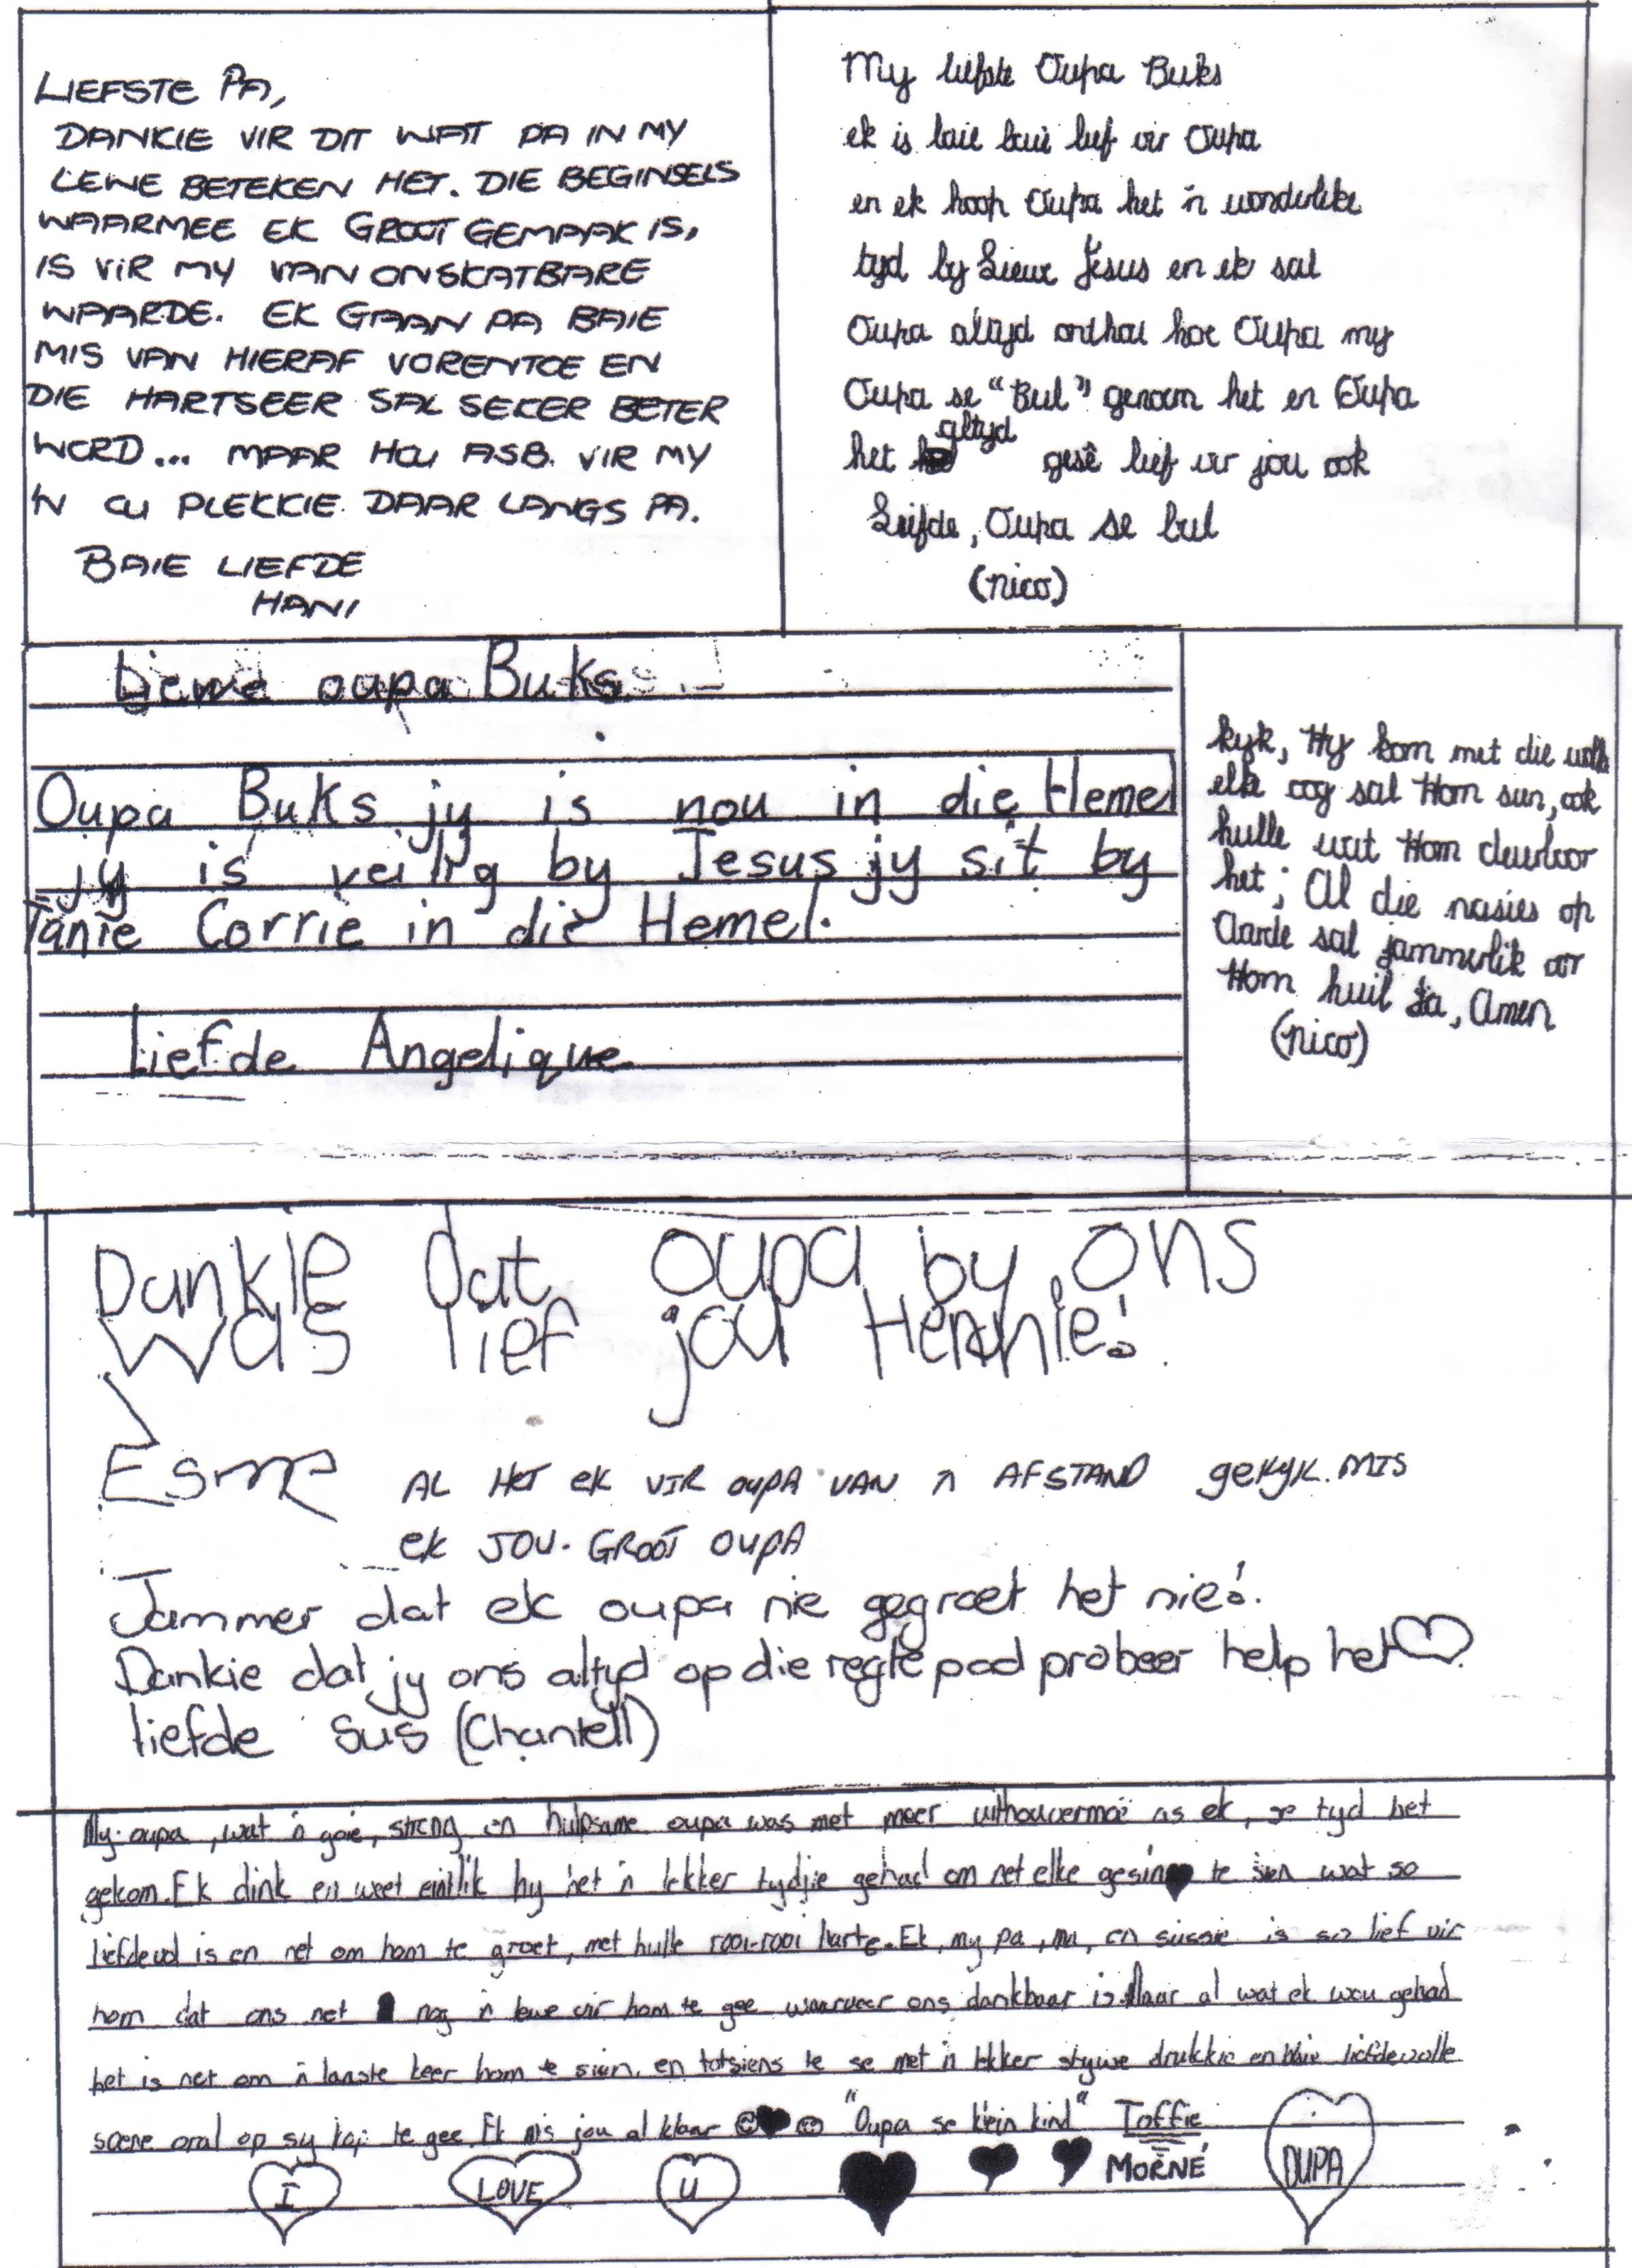 LIEFSTE PA,
DANKIE VIR DIT WAT PA IN MY
LEWE BETEKEN HET. DIE BEGINSELS
WAARMEE EK GROOT GEMAAK IS,
IS VIR MY VAN ONSKATBARE
WAARDE. EK GAAN PA BAIE
MIS VAN HIERAF VORENTOE EN
DIE HARTSEER SAL SEKER BETER
WORD... MAAR HOU ASB. VIR MY
'N OU PLEKKIE DAAR LANGS PA.
BAIE LIEFDE
HANI
My liefste Oupa Buks
ek is baie baie lief vir Oupa
en ek hoop Oupa het 'n wonderlike
tyd by Liewe Jesus en ek sal
Oupa altyd onthou hoe Oupa my
Oupa se "Bul" genoem het en Oupa
het altyd gesê lief vir jou ook
Liefde, Oupa se bul
(Nico)
Liewe oupa Buks
Oupa Buks jy is nou in die Hemel
jy is veilig by Jesus jy sit by
Tanie Corrie in die Hemel.
Liefde Angelique
kyk, Hy kom met die wolke
elke oog sal Hom sien, ook
hulle wat Hom deurboor
het; Al die nasies op
Aarde sal jammerlik oor
Hom huil Ja, Amen
(Nico)
Dankie dat oupa by ons
was lief jou Hennie!
Esme
AL HET EK VIR OUPA VAN 'n AFSTAND GEKYK. MIS
EK JOU. GROOT OUPA
Jammer dat ek oupa nie gegroet het nie!.
Dankie dat jy ons altyd op die regte pad probeer help het
liefde Sus (Chantell)
My oupa, wat 'n goie, streng en hulpsame oupa was met meer uithouvermoë as ek, se tyd het
gekom. Ek dink en weet eintlik hy het 'n lekker tydjie gehad om net elke gesin te sien wat so
liefdevol is en net om hom te groet, met hulle rooi-rooi harte. Ek, my pa, ma, en sussie is so lief vir
hom dat ons net nog 'n lewe vir hom te gee waarveer ons dankbaar is. Maar al wat ek wou gehad
het is net om 'n laaste keer hom te sien, en totsiens te se met 'n lekker stywe drukkie en baie liefdevolle
soene oral op sy kop te gee. Ek mis jou al klaar "Oupa se klein kind" Toffie
I LOVE U MORNÉ OUPA